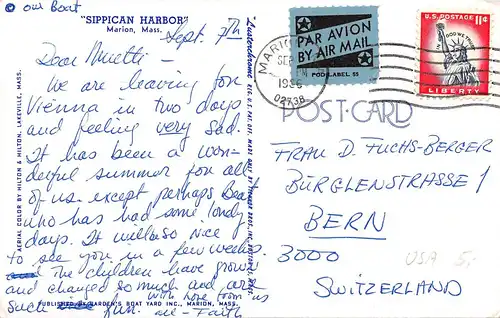 © our Boat
"SIPPICAN HARBOR"
Marion, Mass.
Sept. 7th
Dear Muetti -
We are leaving for
Vienna in two days
and feeling very sad.
It has been a won-
derful summer for all
of us except perhaps Bea
who has had some lonely
days. It will also nice
to see you in a few weeks.
The children have grown
and changed so much and are
such fun.
with love from us
all - Faith
PUBLISHED BY BARDEN'S BOAT YARD INC., MARION, MASS.
AERIAL COLOR BY HILTON & HILTON, LAKEVILLE, MASS.
"Lusterchrome"
REG. U.S. PAT. OFF. MADE ONLY BY TICHNOR BROS., INC., BOSTON, MASS.
PAR AVION
BY AIR MAIL
POD LABEL 55
U.S. POSTAGE 11¢
IN GOD WE TRUST
LIBERTY
MARION
SEP
PM
02738
POST CARD
FRAU D. FUCHS-BERGER
BÜRGLENSTRASSE 1
BERN
3000
SWITZERLAND
USA 5,-